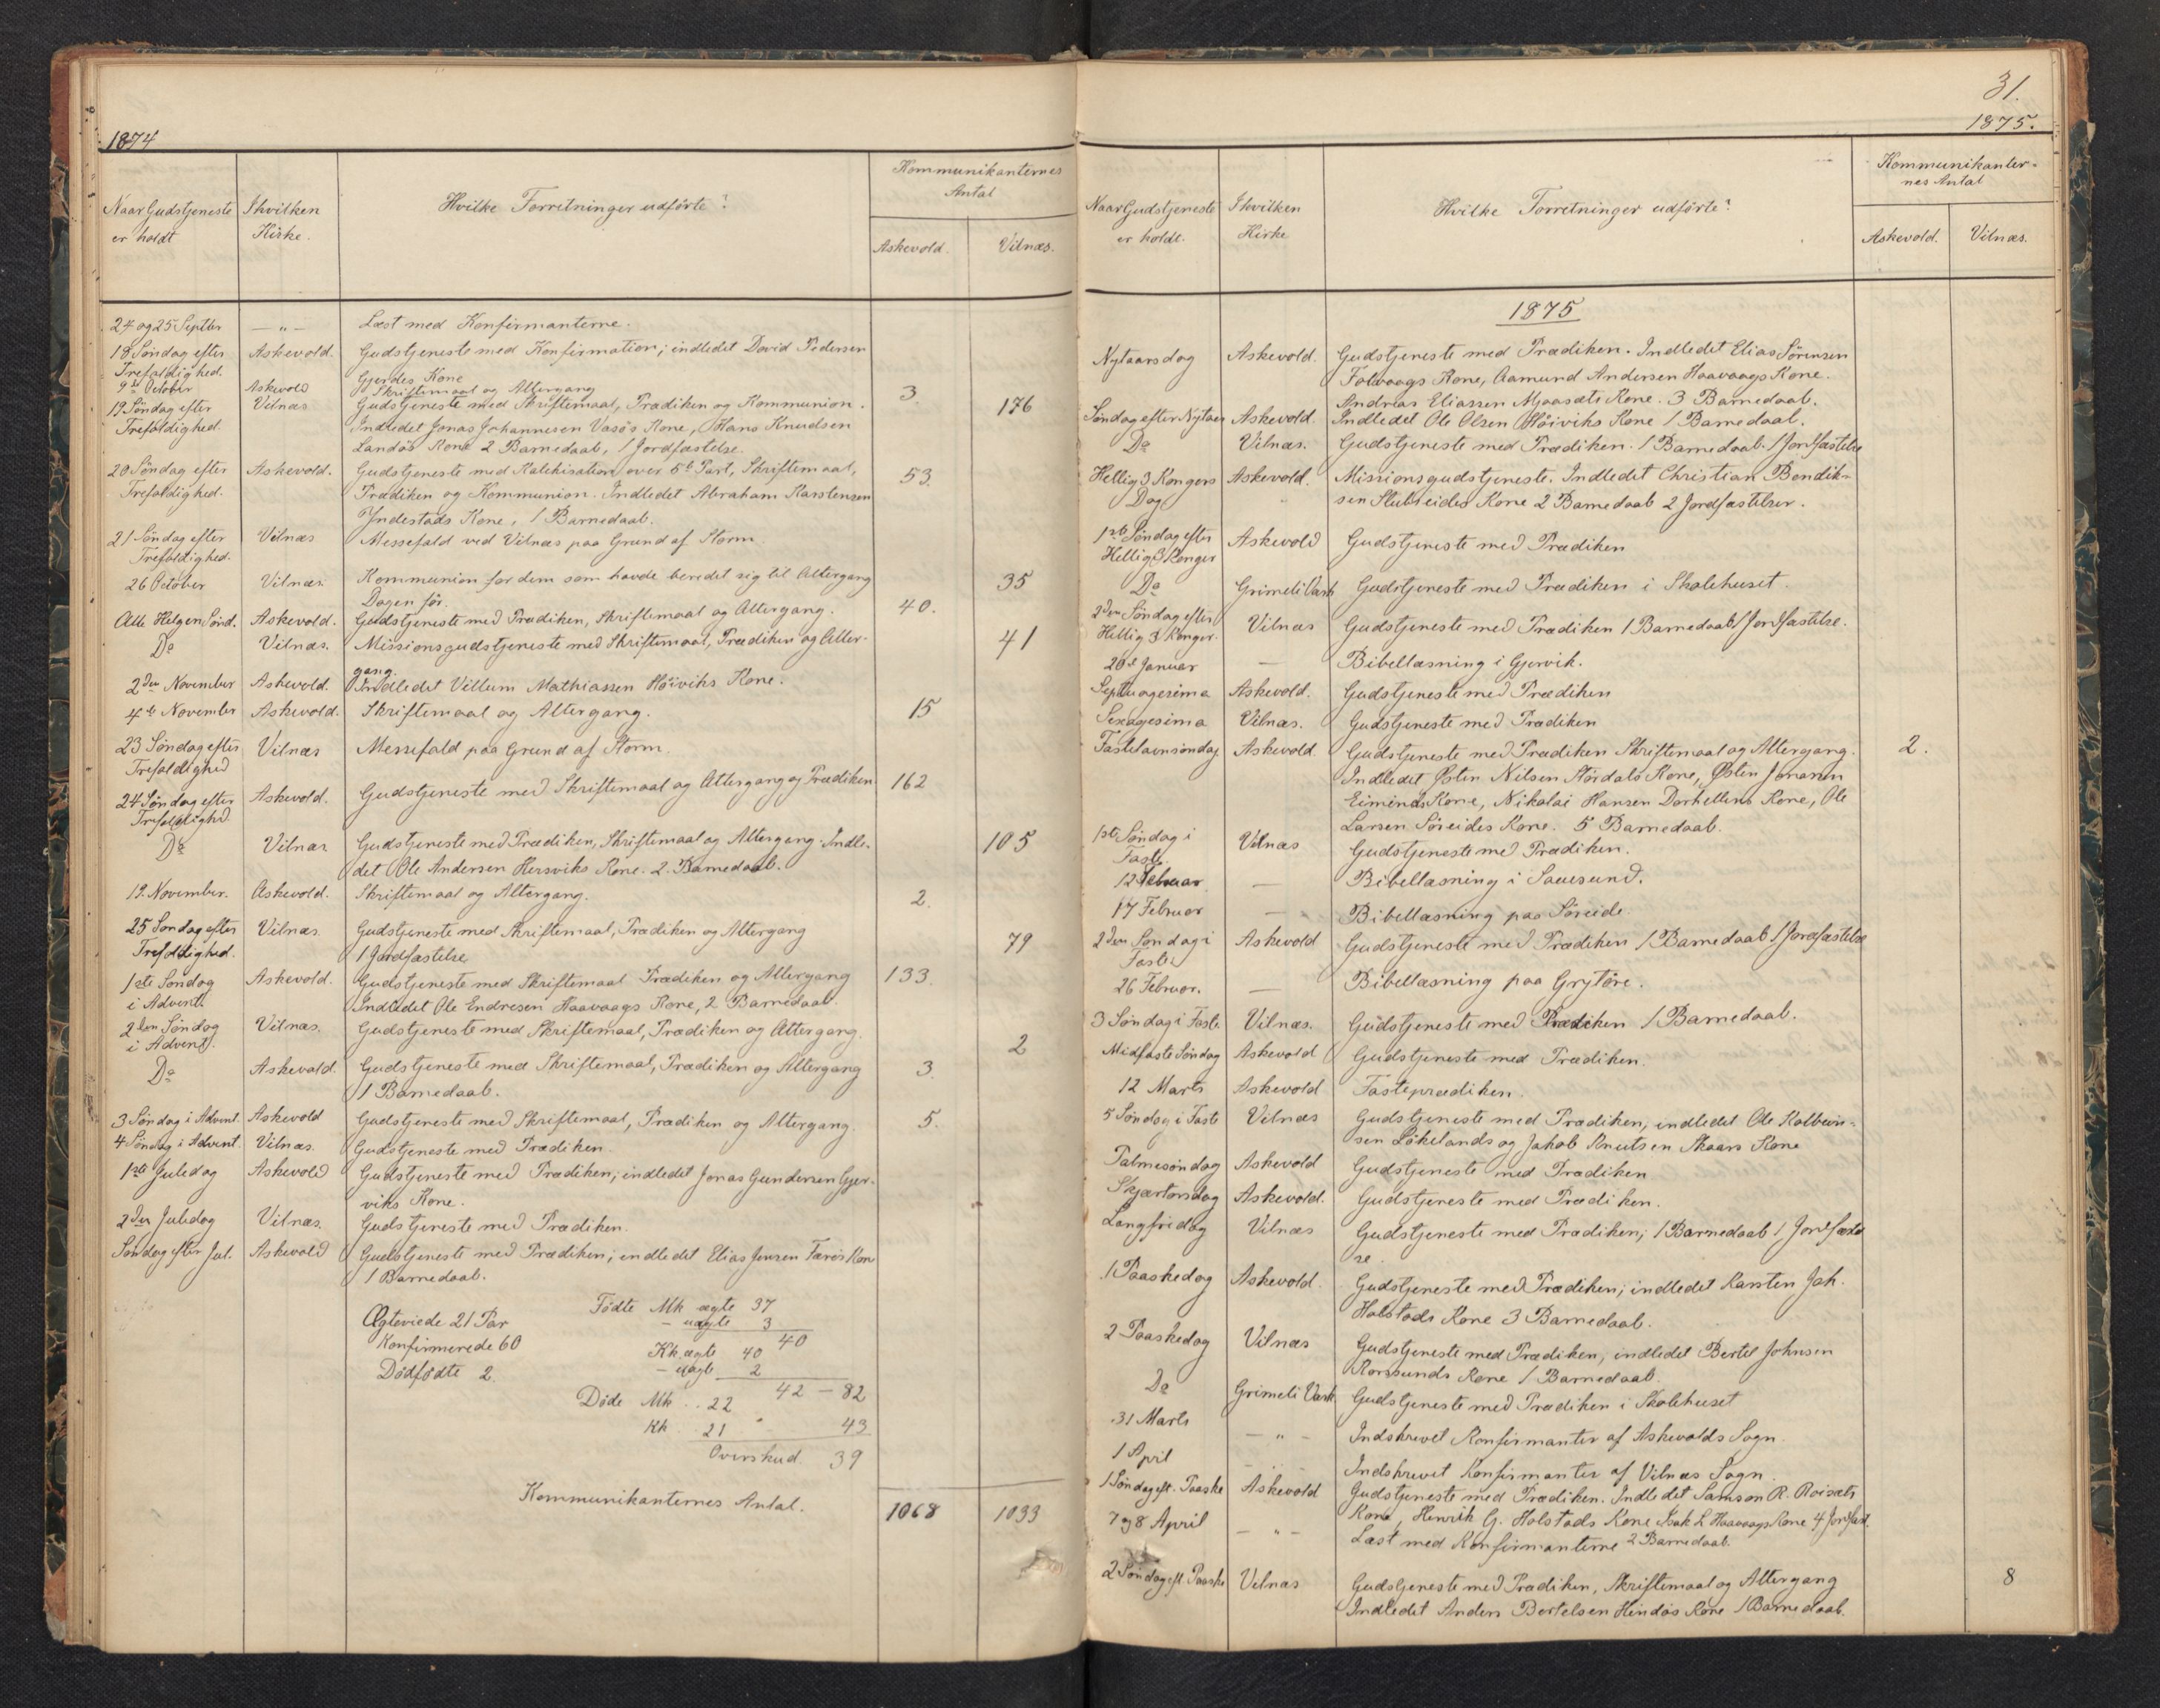 1874
Naar Gudstjeneste
er holdt
I hvilken
Kirke.
Hvilke Forretninger udførte?
Kommunikanternes
Antal
Askevold.
Vilnæs.
24 og 25 Septbr — " — Læst med Konfirmanterne.
18 Søndag efter Askevold. Gudstjeneste med Konfirmation; indledet David Pedersen
Trefoldighed. Gjerdes Kone
9de October Askevold Skriftemaal og Altergang 3.
19 Søndag efter Vilnæs Gudstjeneste med Skriftemaal, Prædiken og Kommunion. 176
Trefoldighed. Indledet Jonas Johannesen Vasøs Kone, Hans Knudsen
Landøs Kone 2 Barnedaab, 1 Jordfæstelse.
20 Søndag efter Askevold. Gudstjeneste med Katekisation over 5te Part, Skriftemaal, 53.
Trefoldighed. Prædiken og Kommunion. Indledet Abraham Karstensen
Yndestads Kone, 1 Barnedaab.
21 Søndag efter Vilnæs Messefald ved Vilnæs paa Grund af Storm.
Trefoldighed.
26 October Vilnæs Kommunion for dem som havde beredet sig til Altergang 35
Dagen før.
Alle Helgen Sönd. Askevold. Gudstjeneste med Prædiken, Skriftemaal og Altergang. 40.
Do Vilnæs. Missionsgudstjeneste med Skriftemaal, Prædiken og Alter- 41
gang.
2den November Askevold. Indledet Villum Mathiassen Høiviks Kone.
4de November Askevold. Skriftemaal og Altergang. 15
23 Søndag efter Vilnæs Messefald paa Grund af Storm.
Trefoldighed
24 Søndag efter Askevold. Gudstjeneste med Skriftemaal og Altergang og Prædiken 162
Trefoldighed
Do Vilnæs Gudstjeneste med Prædiken, Skriftemaal og Altergang. Indle- 105
det Ole Andersen Hersviks Kone. 2 Barnedaab.
19. November. Askevold. Skriftemaal og Altergang. 2.
25 Søndag efter Vilnæs. Gudstjeneste med Skriftemaal, Prædiken og Altergang 79
Trefoldighed. 1 Jordfæstelse
1ste Søndag Askevold. Gudstjeneste med Skriftemaal Prædiken og Altergang 133.
i Advent. Indledet Ole Endresen Haavaags Kone, 2 Barnedaab.
2den Søndag Vilnæs. Gudstjeneste med Skriftemaal, Prædiken og Altergang. 2
i Advent.
Do Askevold. Gudstjeneste med Skriftemaal, Prædiken og Altergang 3.
1 Barnedaab.
3 Søndag i Advent. Askevold Gudstjeneste med Skriftemaal, Prædiken og Altergang. 5.
4 Søndag i Advent. Vilnæs. Gudstjeneste med Prædiken.
1ste Juledag Askevold Gudstjeneste med Prædiken; indledet Jonas Gundersen Gjer-
viks Kone.
2den Juledag Vilnæs. Gudstjeneste med Prædiken.
Søndag efter Jul. Askevold Gudstjeneste med Prædiken; indledet Elias Jensen Færøs Kon
1 Barnedaab.
Ægteviede 21 Par
Konfirmerede 60
Dødfødte 2.
Fødte Mk ægte 37
- uægte 3
40
Kk. ægte 40
- uægte 2
42 - 82
Døde Mk .. 22
Kk . 21 " 43
Overskud. 39
Kommunikanternes Antal. 1068 1033
31.
1875.
Naar Gudstjeneste
er holdt.
I hvilken
Kirke
Hvilke Forretninger udførte?
Kommunikanter-
nes Antal
Askevold.
Vilnæs.
1875
Nytaarsdag Askevold. Gudstjeneste med Prædiken. Indledet Elias Sørensen
Folevaags Kone, Aamund Andersen Haavaags Kone.
Andreas Eliassen Mjaasæts Kone. 3 Barnedaab.
Søndag efter Nytaar Askevold. Indledet Ole Olsen Høiviks Kone 1 Barnedaab.
Do Vilnæs. Gudstjeneste med Prædiken. 1 Barnedaab. 1 Jordfæstelse
Hellig 3 Kongers Askevold. Missionsgudstjeneste. Indledet Christian Bendik-
Dag sen Slubseides Kone 2 Barnedaab 2 Jordfæstelser.
1ste Søndag efter Askevold Gudstjeneste med Prædiken
Hellig 3 Konger
Do Grimeli Værk Gudstjeneste med Prædiken i Skolehuset.
2den Søndag efter Vilnæs Gudstjeneste med Prædiken 1 Barnedaab 1 Jordfæstelse.
Hellig 3 Konger.
20de Januar — Bibellæsning i Gjervik.
Septuagesima Askevold. Gudstjeneste med Prædiken
Sexagesima Vilnæs. Gudstjeneste med Prædiken
Fastelavnsøndag Askevold Gudstjeneste med Prædiken Skriftemaal og Altergang. 2.
Indledet Østen Nilsen Størdals Kone, Østen Jonasen
Eiminds Kone, Nikolai Hansen Dorhellens Kone, Ole
Larsen Søreides Kone. 5 Barnedaab.
1ste Søndag i Vilnæs Gudstjeneste med Prædiken.
Faste.
12 Februar — Bibellæsning i Sauesund.
17 Februar — Bibellæsning paa Søreide.
2den Søndag i Askevold Gudstjeneste med Prædiken 1 Barnedaab 1 Jordfæstelse
Faste
26 Februar. — Bibellæsning paa Grytøre.
3 Søndag i Faste Vilnæs. Gudstjeneste med Prædiken 1 Barnedaab.
Midfaste Søndag Askevold Gudstjeneste med Prædiken.
12 Marts Askevold Fasteprædiken.
5 Søndag i Faste Vilnæs Gudstjeneste med Prædiken; indledet Ole Kolbein-
sen Løkelands og Jakob Knutsen Skaars Kone
Palmesøndag Askevold Gudstjeneste med Prædiken
Skjærtorsdag Askevold. Gudstjeneste med Prædiken.
Langfridag Vilnæs Gudstjeneste med Prædiken; 1 Barnedaab 1 Jordfæstel
se.
1 Paaskedag Askevold. Gudstjeneste med Prædiken; indledet Karsten Joh.
Holstads Kone 3 Barnedaab.
2 Paaskedag Vilnæs Gudstjeneste med Prædiken; indledet Bertel Johnsen
Korssunds Kone 1 Barnedaab.
Do Grimeli Værk Gudstjeneste med Prædiken i Skolehuset
31 Marts — " — Indskrevet Konfirmanter af Askevolds Sogn.
1 April — " — Indskrevet Konfirmanter af Vilnæs Sogn.
1 Søndag eft. Paaske Askevold Gudstjeneste med Prædiken. Indledet Samson R. Roisæts
Kone, Henrik G. Holstads Kone Isak L Haavaags Kone 4 Jordfæst.
7 og 8 April — " — Læst med Konfirmanterne 2 Barnedaab.
2 Søndag eft. Paaske Vilnæs Gudstjeneste med Prædiken, Skriftemaal og Altergang 8
Indledet Anders Bertelsen Hindøs Kone 1 Barnedaab.